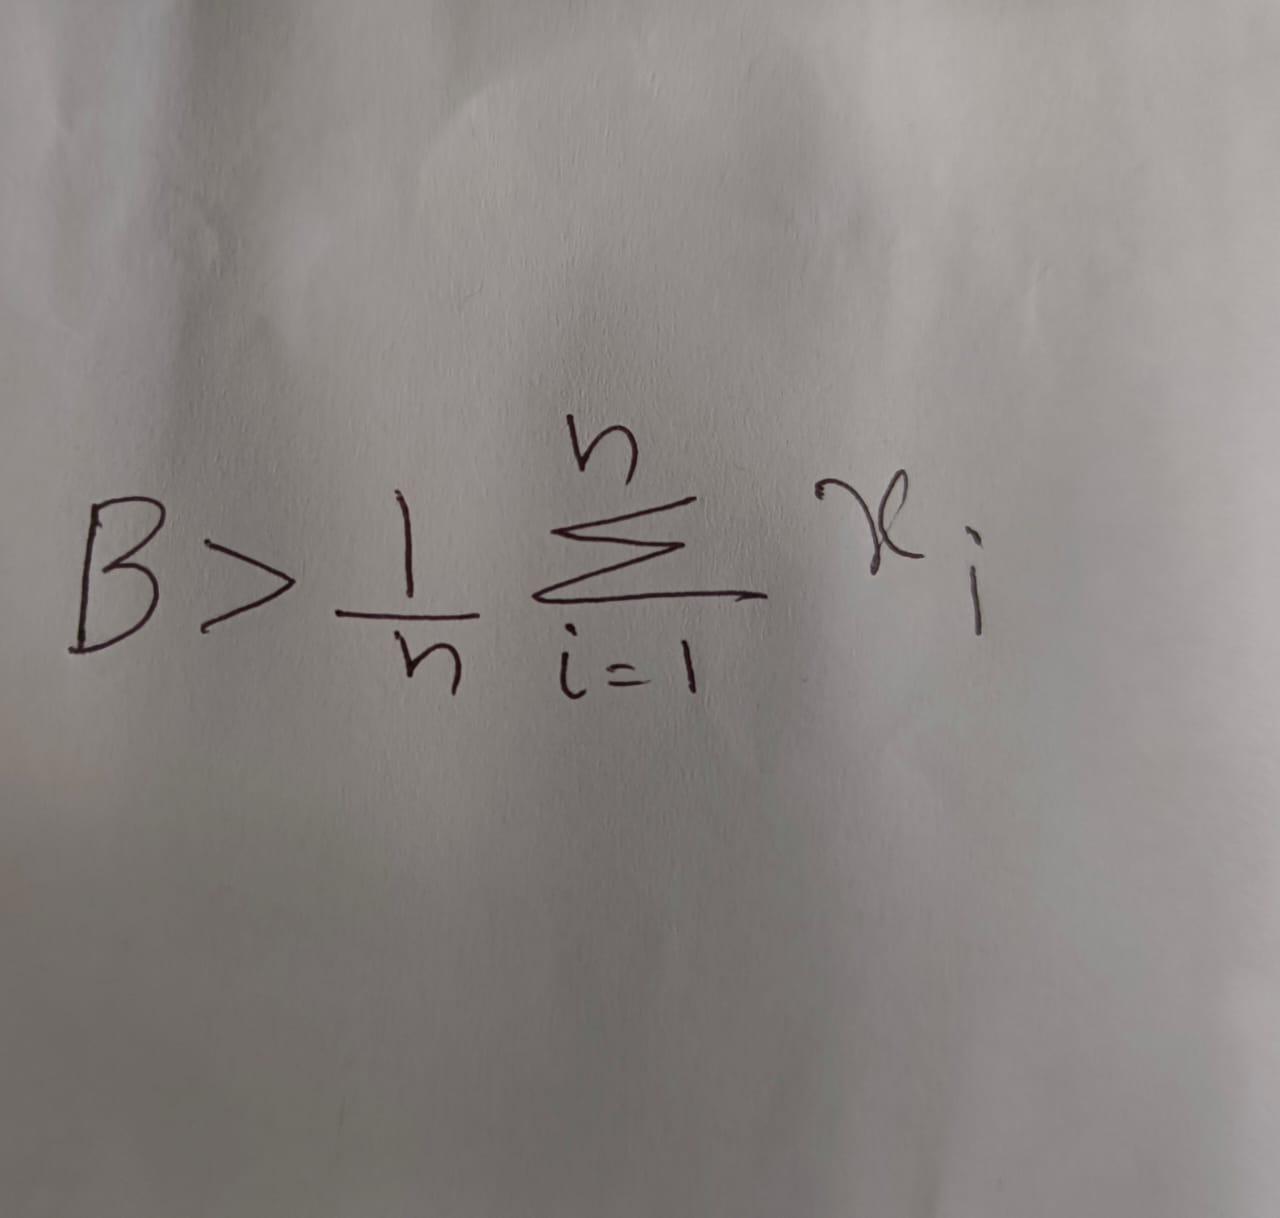 B > \frac{1}{n} \sum_{i=1}^{n} x_i